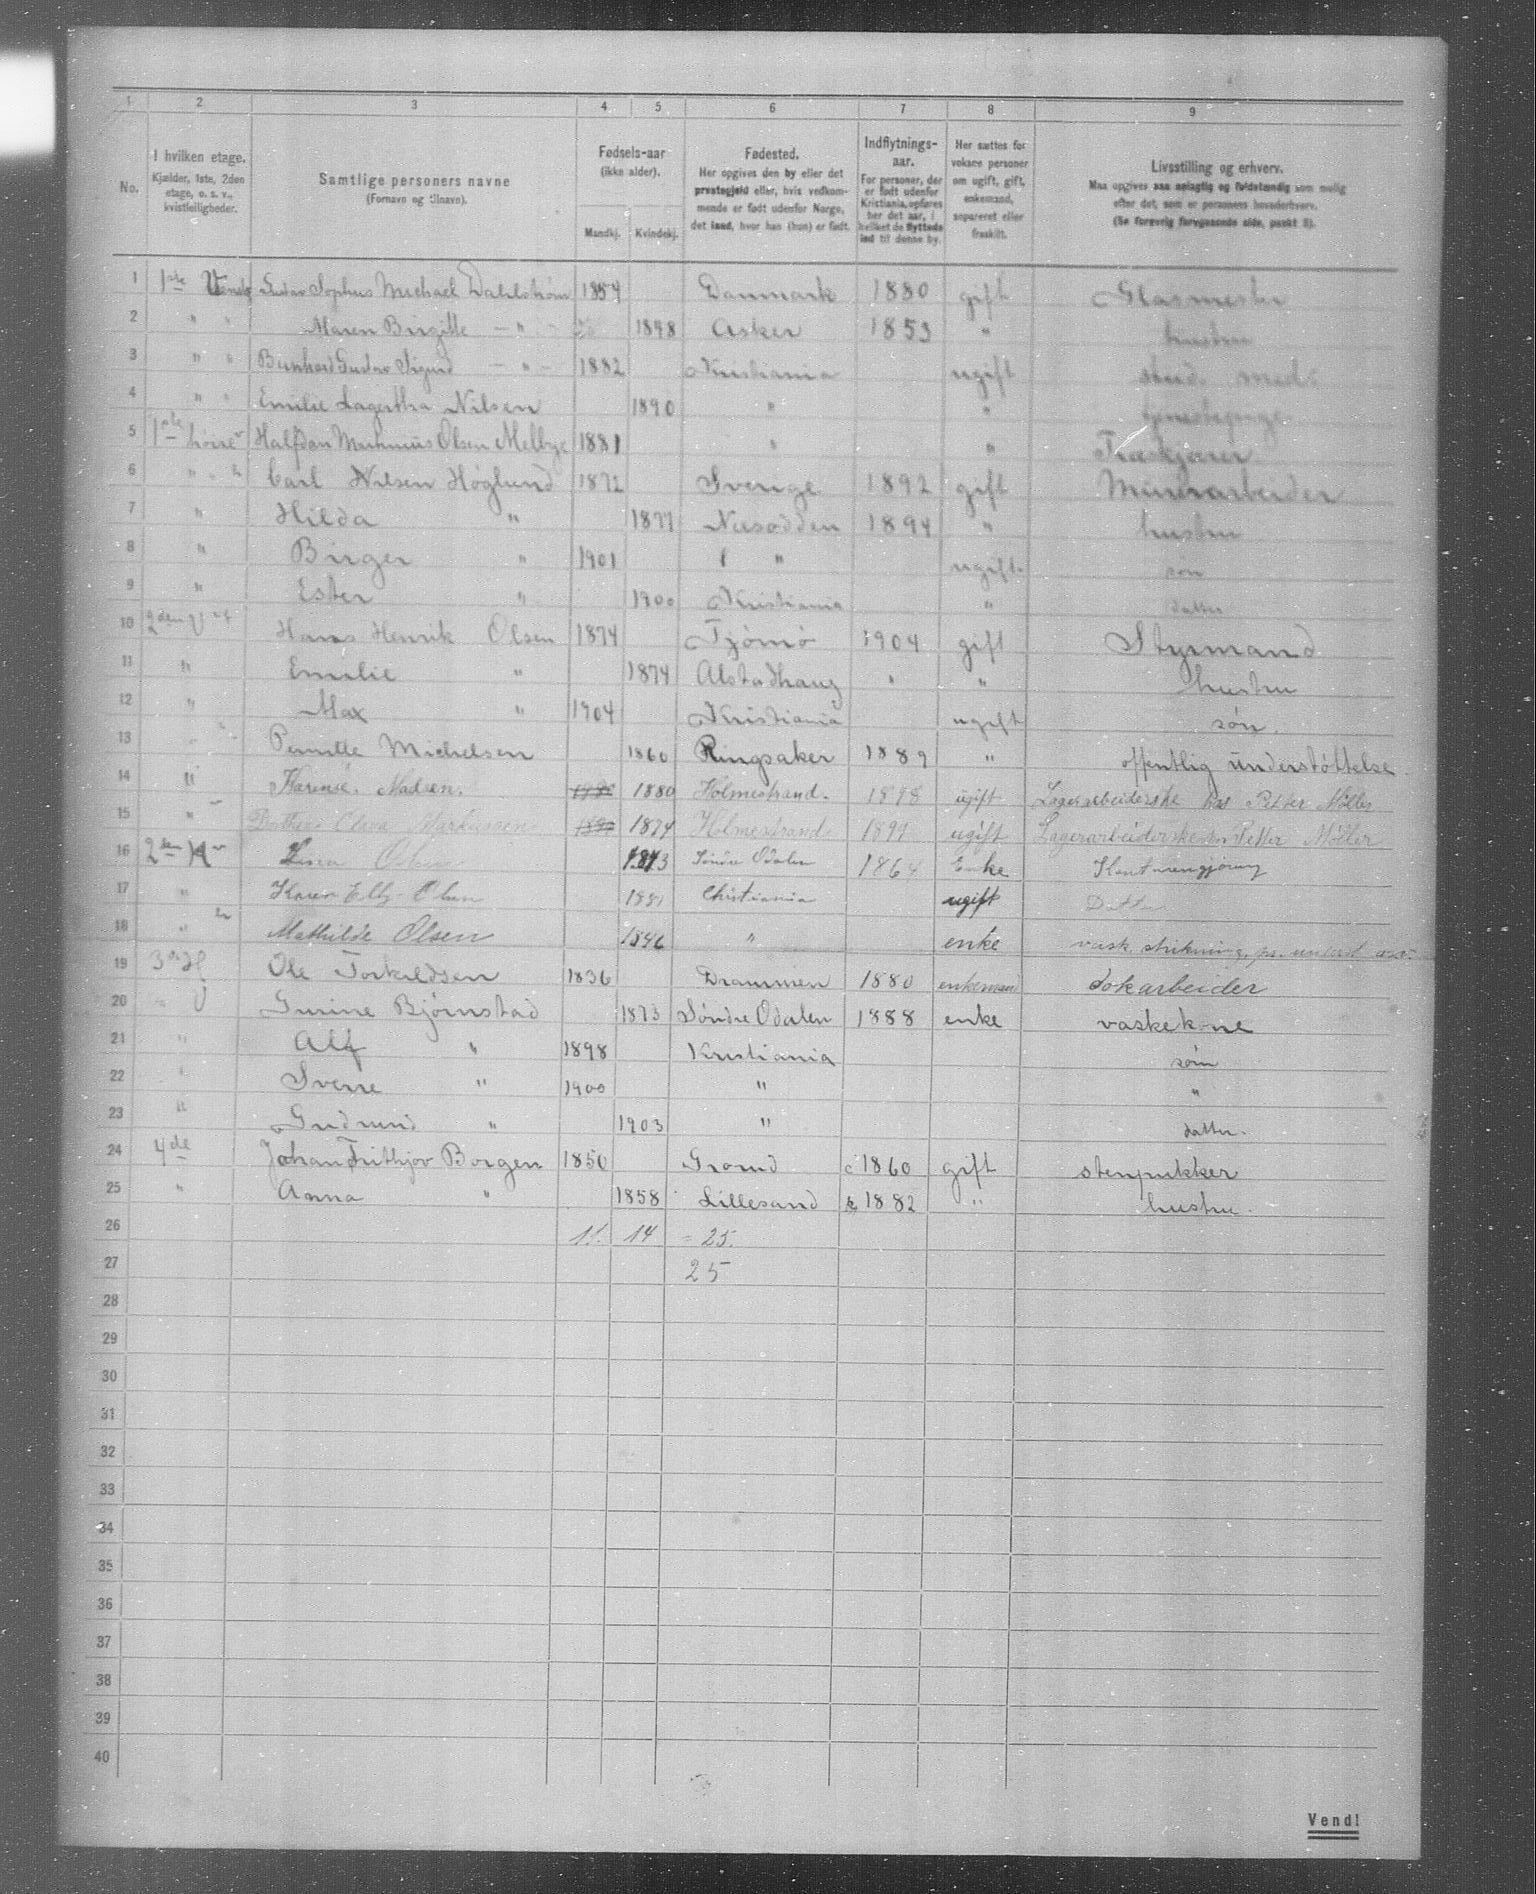 1 2 3 4 5 6 7 8 9
No. I hvilken etage. Kjælder, 1ste, 2den etage, o. s. v., kvistleiligheder. Samtlige personers navne (Fornavn og tilnavn). Fødsels-aar (ikke alder). Mandkj. Kvindekj. Fødested. Her opgives den by eller det prestegjeld eller, hvis vedkommende er født udenfor Norge, det land, hvor han (hun) er født. Indflytnings-aar. For personer, der er født udenfor Kristiania, opføres her det aar, i hvilket de flyttede ind til denne by. Her sættes for voksne personer om ugift, gift, enkemand, separeret eller fraskilt. Livsstilling og erhverv. Maa opgives saa nøiagtig og fuldstændig som mulig efter det, som er personens hovederhverv. (Se forøvrig foregaaende side, punkt 5).
1 1ste Gustav Sophus Michael Dahlstrøm 1854 Danmark 1880 gift Glasmester
2 " " Maren Birgitte — " — 1898 Asker 1853 " hustru
3 " " Bernhard Gustav Sigurd — " — 1882 Kristiania ugift stud. med.
4 " " Emilie Lagertha Nilsen 1890 " " tjenestepige
5 1ste høire Halfdan Marthinius Olsen Melbye 1881 " " Træskjærer
6 " " Carl Nilsen Høglund 1872 Sverige 1892 gift Murerarbeider
7 " Hilda " 1877 Næsodden 1894 " hustru
8 " Birger " 1901 " ugift. søn
9 " Ester " 1900 Kristiania " datter
10 2den V Hans Henrik Olsen 1874 Tjømø 1904 gift Styrmand
11 " Emilie " 1874 Alstadhaug " " hustru
12 " Max " 1904 Kristiania ugift søn.
13 Pernille Michelsen 1860 Ringsaker 1889 " offentlig understøttelse.
14 " Karense. Madsen. 1880 Holmestrand. 1898 ugift Lagerarbeiderske hos Petter Møller
15 " Olava Markussen 1874 Holmestrand 1897 ugift Lagerarbeiderske hos Petter Møller
16 2den H Lina Olsen 1843 Søndre Odalen 1864 Enke Kontorrengjøring
17 " Karen Elly Olsen 1881 Christiania ugift Datter
18 " Mathilde Olsen 1846 " enke vask, strikning,
19 3die H Ole Torkildsen 1836 Drammen 1880 enkemand Dokarbeider
20 " V Gurine Bjørnstad 1873 Søndre Odalen 1888 enke vaskekone
21 " Alf " 1898 Kristiania søn
22 " Sverre " 1900 " "
23 " Gudrund " 1903 " datter.
24 4de Johan Frithjov Borgen 1850 Gromd c 1860 gift stenpukker
25 " Anna " 1858 Lillesand 1882 " hustru.
26 11. 14 = 25.
27 25
28
29
30
31
32
33
34
35
36
37
38
39
40
Vend!